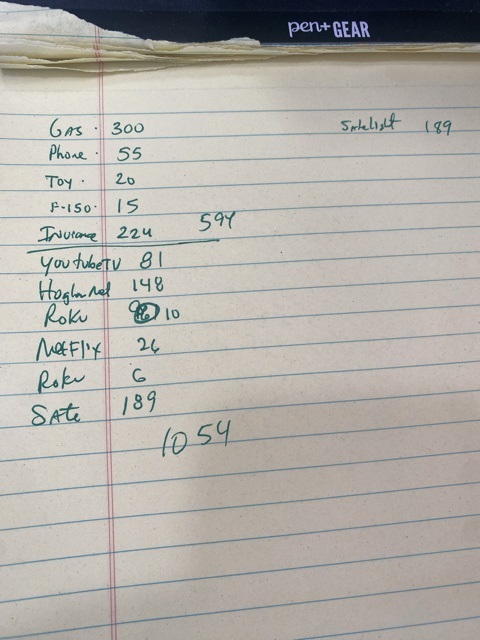 pen+GEAR
GAS · 300
Satelight 189
Phone · 55
TOY · 20
F-150 · 15
Insurance 224 594
YoutubeTV 81
148
Roku 10
NetFlix 26
Roku 6
SAte 189
1054